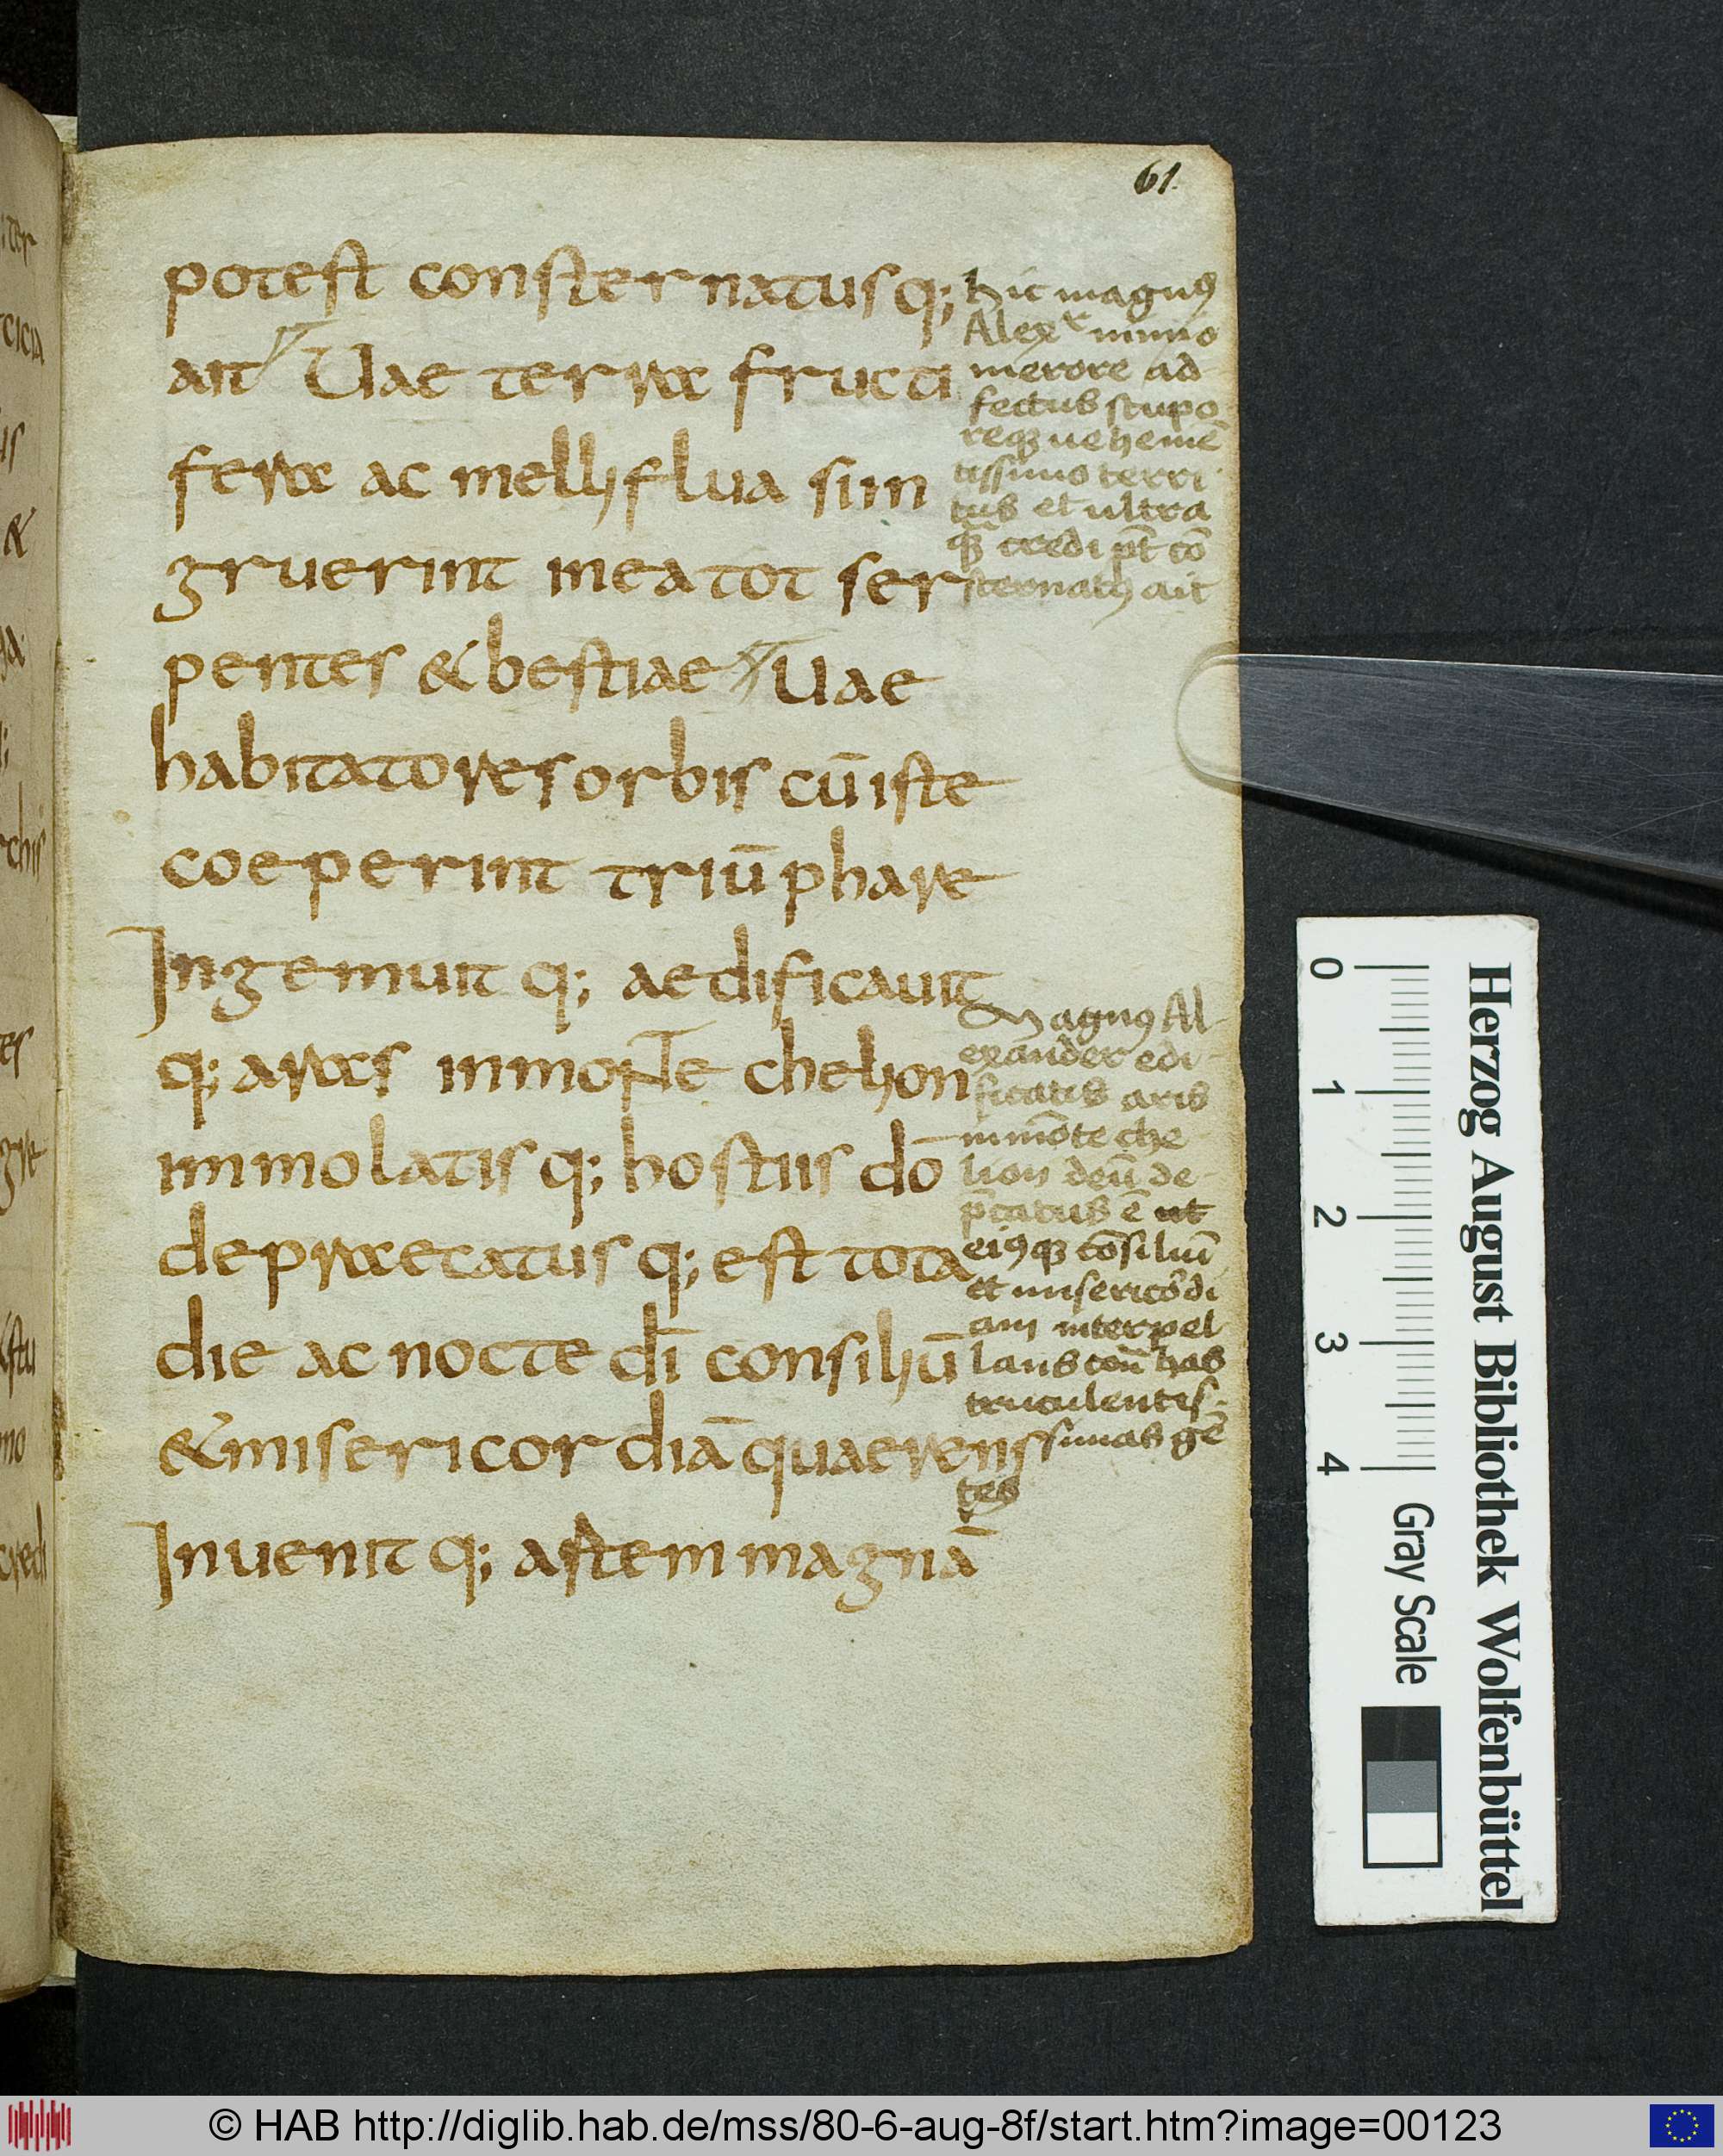 61
potest consternatusq;
ait Uae terrae fructi
ferae ac melliflua sin
gruerint in ea tot ser
pentes & bestiae Uae
habitatores orbis cū iste
coeperint triūphare
Ingemuit q; aedificauit
q; aras in monte chelion
immolatis q; hostiis do͞
depraecatus q; est tota
die ac nocte di͞ consiliū
& misericordiā quaerens
Inuenit q; astem magnā
hic magnꝰ
Alexͬ nimio
merore ad
fectus stupo
reqꝫ uehemē
tissimo terri
tus et ultra
q̄ꝫ credi pt̄ cō
sternatꝰ ait
Magnꝰ Al
exander edi
ficatis aris
in mōte che
lion deū de
p̄catus ē ut
eiꝰqꝫ cōsiliū
et misericōdi
am interpel
lans
truculentis
simas gē
tes
0 1 2 3 4
Gray Scale
Herzog August Bibliothek Wolfenbüttel
© HAB http://diglib.hab.de/mss/80-6-aug-8f/start.htm?image=00123